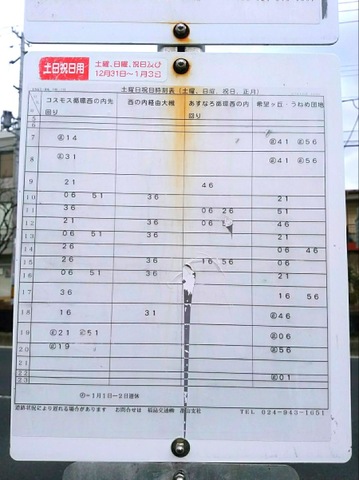 土日祝日用
土曜、日曜、祝日及び
12月31日～1月3日
土曜日祝日時刻表（土曜、日曜、祝日、正月）
コスモス循環西の内先回り 西の内経由大槻 あすなろ循環西の内回り 希望ヶ丘・うねめ団地
5
6
7 14 41 56
8 31 41 56
9 21 46
10 06 51 36 21
11 36 06 26 51
12 21 36 06 46
13 06 51 36 21
14 26 06 46
15 26 36 16 56 06
16 06 51 36 21
17 36 16 56
18 16 31 46
19 21 51 06
20 19 56
21
22 01
23
1月1日～2日運休
道路状況により遅れる場合があります お問合せは 福島交通㈱ 郡山支社 TEL 024-943-1651